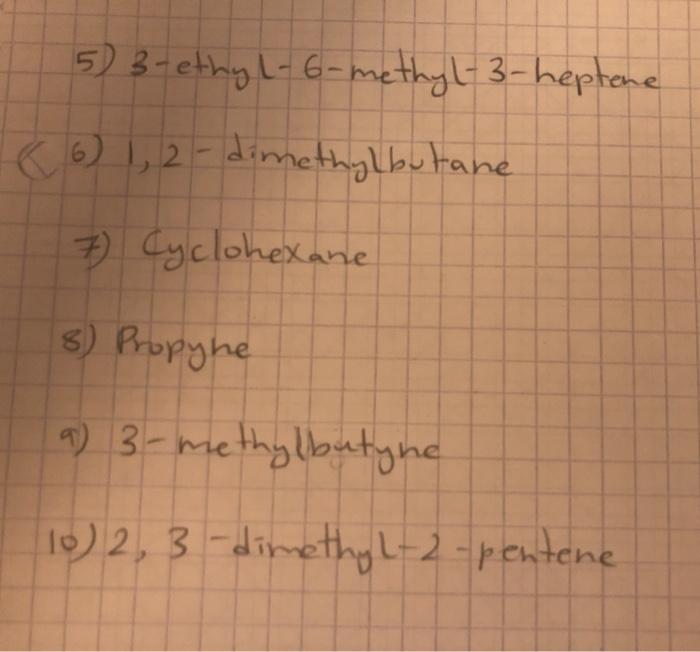 5) 3-ethyl-6-methyl-3-heptene
6) 1,2-dimethylbutane
7) Cyclohexane
8) Propyne
9) 3-methylbutyne
10) 2, 3-dimethyl-2-pentene